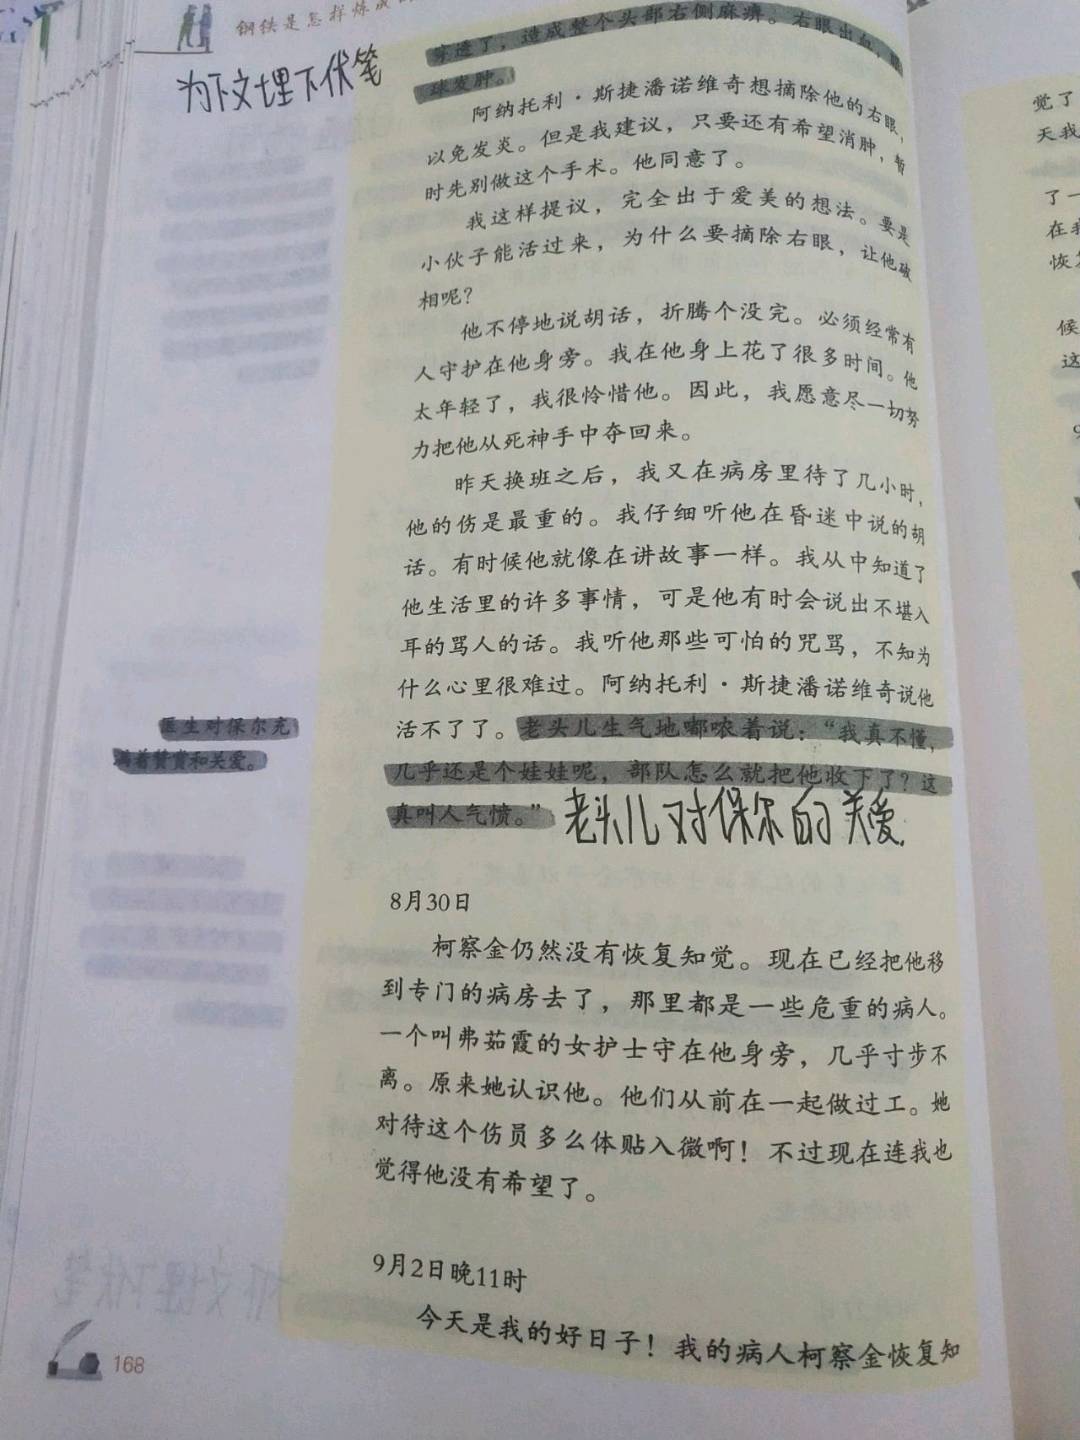 钢铁是怎样炼成的
为下文埋下伏笔
穿透了，造成整个头部右侧麻痹。右眼出血，眼
球发肿。
阿纳托利·斯捷潘诺维奇想摘除他的右眼，
以免发炎。但是我建议，只要还有希望消肿，暂
时先别做这个手术。他同意了。
我这样提议，完全出于爱美的想法。要是
小伙子能活过来，为什么要摘除右眼，让他破
相呢？
他不停地说胡话，折腾个没完。必须经常有
人守护在他身旁。我在他身上花了很多时间。他
太年轻了，我很怜惜他。因此，我愿意尽一切努
力把他从死神手中夺回来。
昨天换班之后，我又在病房里待了几小时，
他的伤是最重的。我仔细听他在昏迷中说的胡
话。有时候他就像在讲故事一样。我从中知道了
他生活里的许多事情，可是他有时会说出不堪入
耳的骂人的话。我听他那些可怕的咒骂，不知为
什么心里很难过。阿纳托利·斯捷潘诺维奇说他
活不了了。老头儿生气地嘟哝着说：“我真不懂，
几乎还是个娃娃呢，部队怎么就把他收下了？这
真叫人气愤。”
老头儿对保尔的关爱.
医生对保尔充
满着赞赏和关爱。
8月30日
柯察金仍然没有恢复知觉。现在已经把他移
到专门的病房去了，那里都是一些危重的病人。
一个叫弗茹霞的女护士守在他身旁，几乎寸步不
离。原来她认识他。他们从前在一起做过工。她
对待这个伤员多么体贴入微啊！不过现在连我也
觉得他没有希望了。
9月2日晚11时
今天是我的好日子！我的病人柯察金恢复知
168
觉了
天我
了一
在我
恢复
候
这